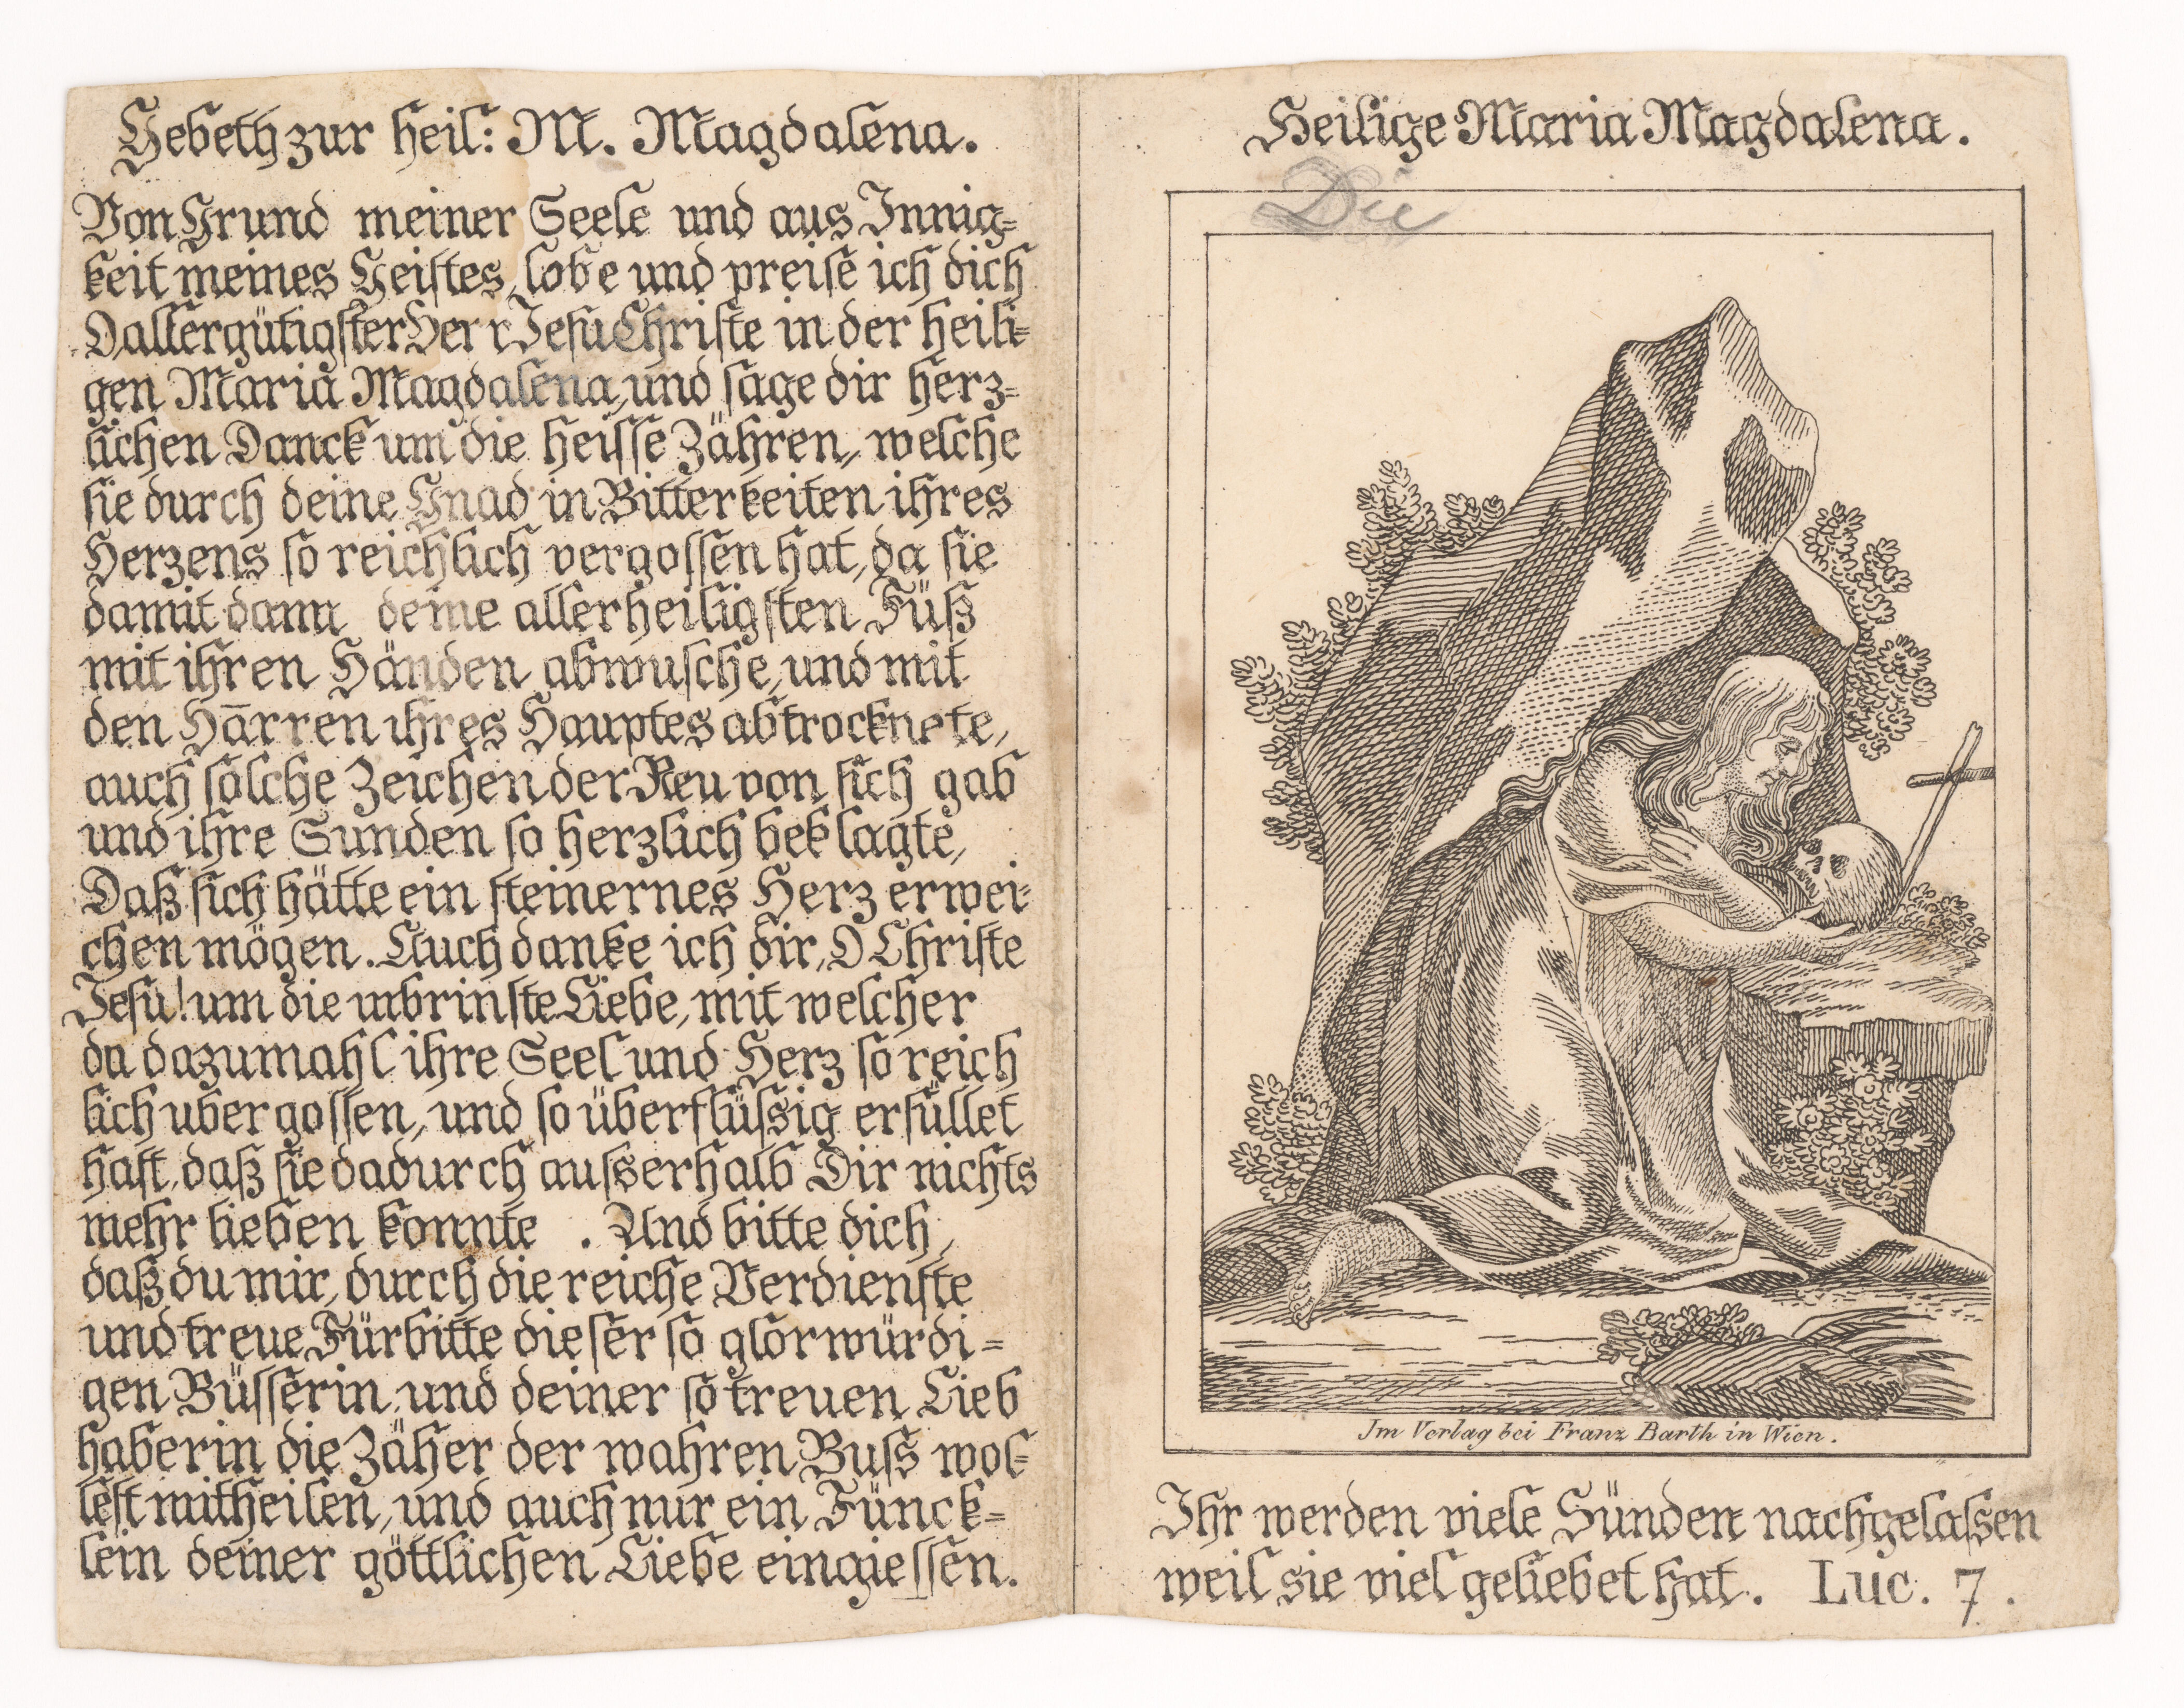 Gebeth zur heil: M. Magdalena.
Von Grund meiner Seele und aus Innig=
keit meines Geistes, lobe und preise ich dich
O allergütigster Herr Jesu Christe in der heili=
gen Maria Magdalena, und sage dir herz=
lichen Danck um die heisse Zähren, welche
sie durch deine Gnad in Bitterkeiten ihres
Herzens so reichlich vergossen hat, da sie
damit dann deine allerheiligsten Füß
mit ihren Händen abwusche, und mit
den Harren ihres Hauptes abtrocknete,
auch solche Zeichen der Reu von sich gab
und ihre Sunden so herzlich beklagte,
Daß sich hätte ein steinernes Herz erwei=
chen mögen. Auch danke ich dir, O Christe
Jesu! um die inbrinste Liebe, mit welcher
da dazumahl ihre Seel und Herz so reich
lich ubergossen, und so überflüssig erfüllet
hast, daß sie dadurch ausserhalb Dir nichts
mehr lieben konnte . Und bitte dich,
daß du mir, durch die reiche Verdienste
und treue Fürbitte dieser so glorwürdi=
gen Büsserin, und deiner so treuen Lieb
haberin die Zäher der wahren Buss wol=
lest mittheilen, und auch nur ein Fünck=
lein deiner göttlichen Liebe eingiessen.
Heilige Maria Magdalena.
Die
Im Verlag bei Franz Barth in Wien.
Ihr werden viele Sünden nachgelassen
weil sie viel geliebet hat. Luc. 7.